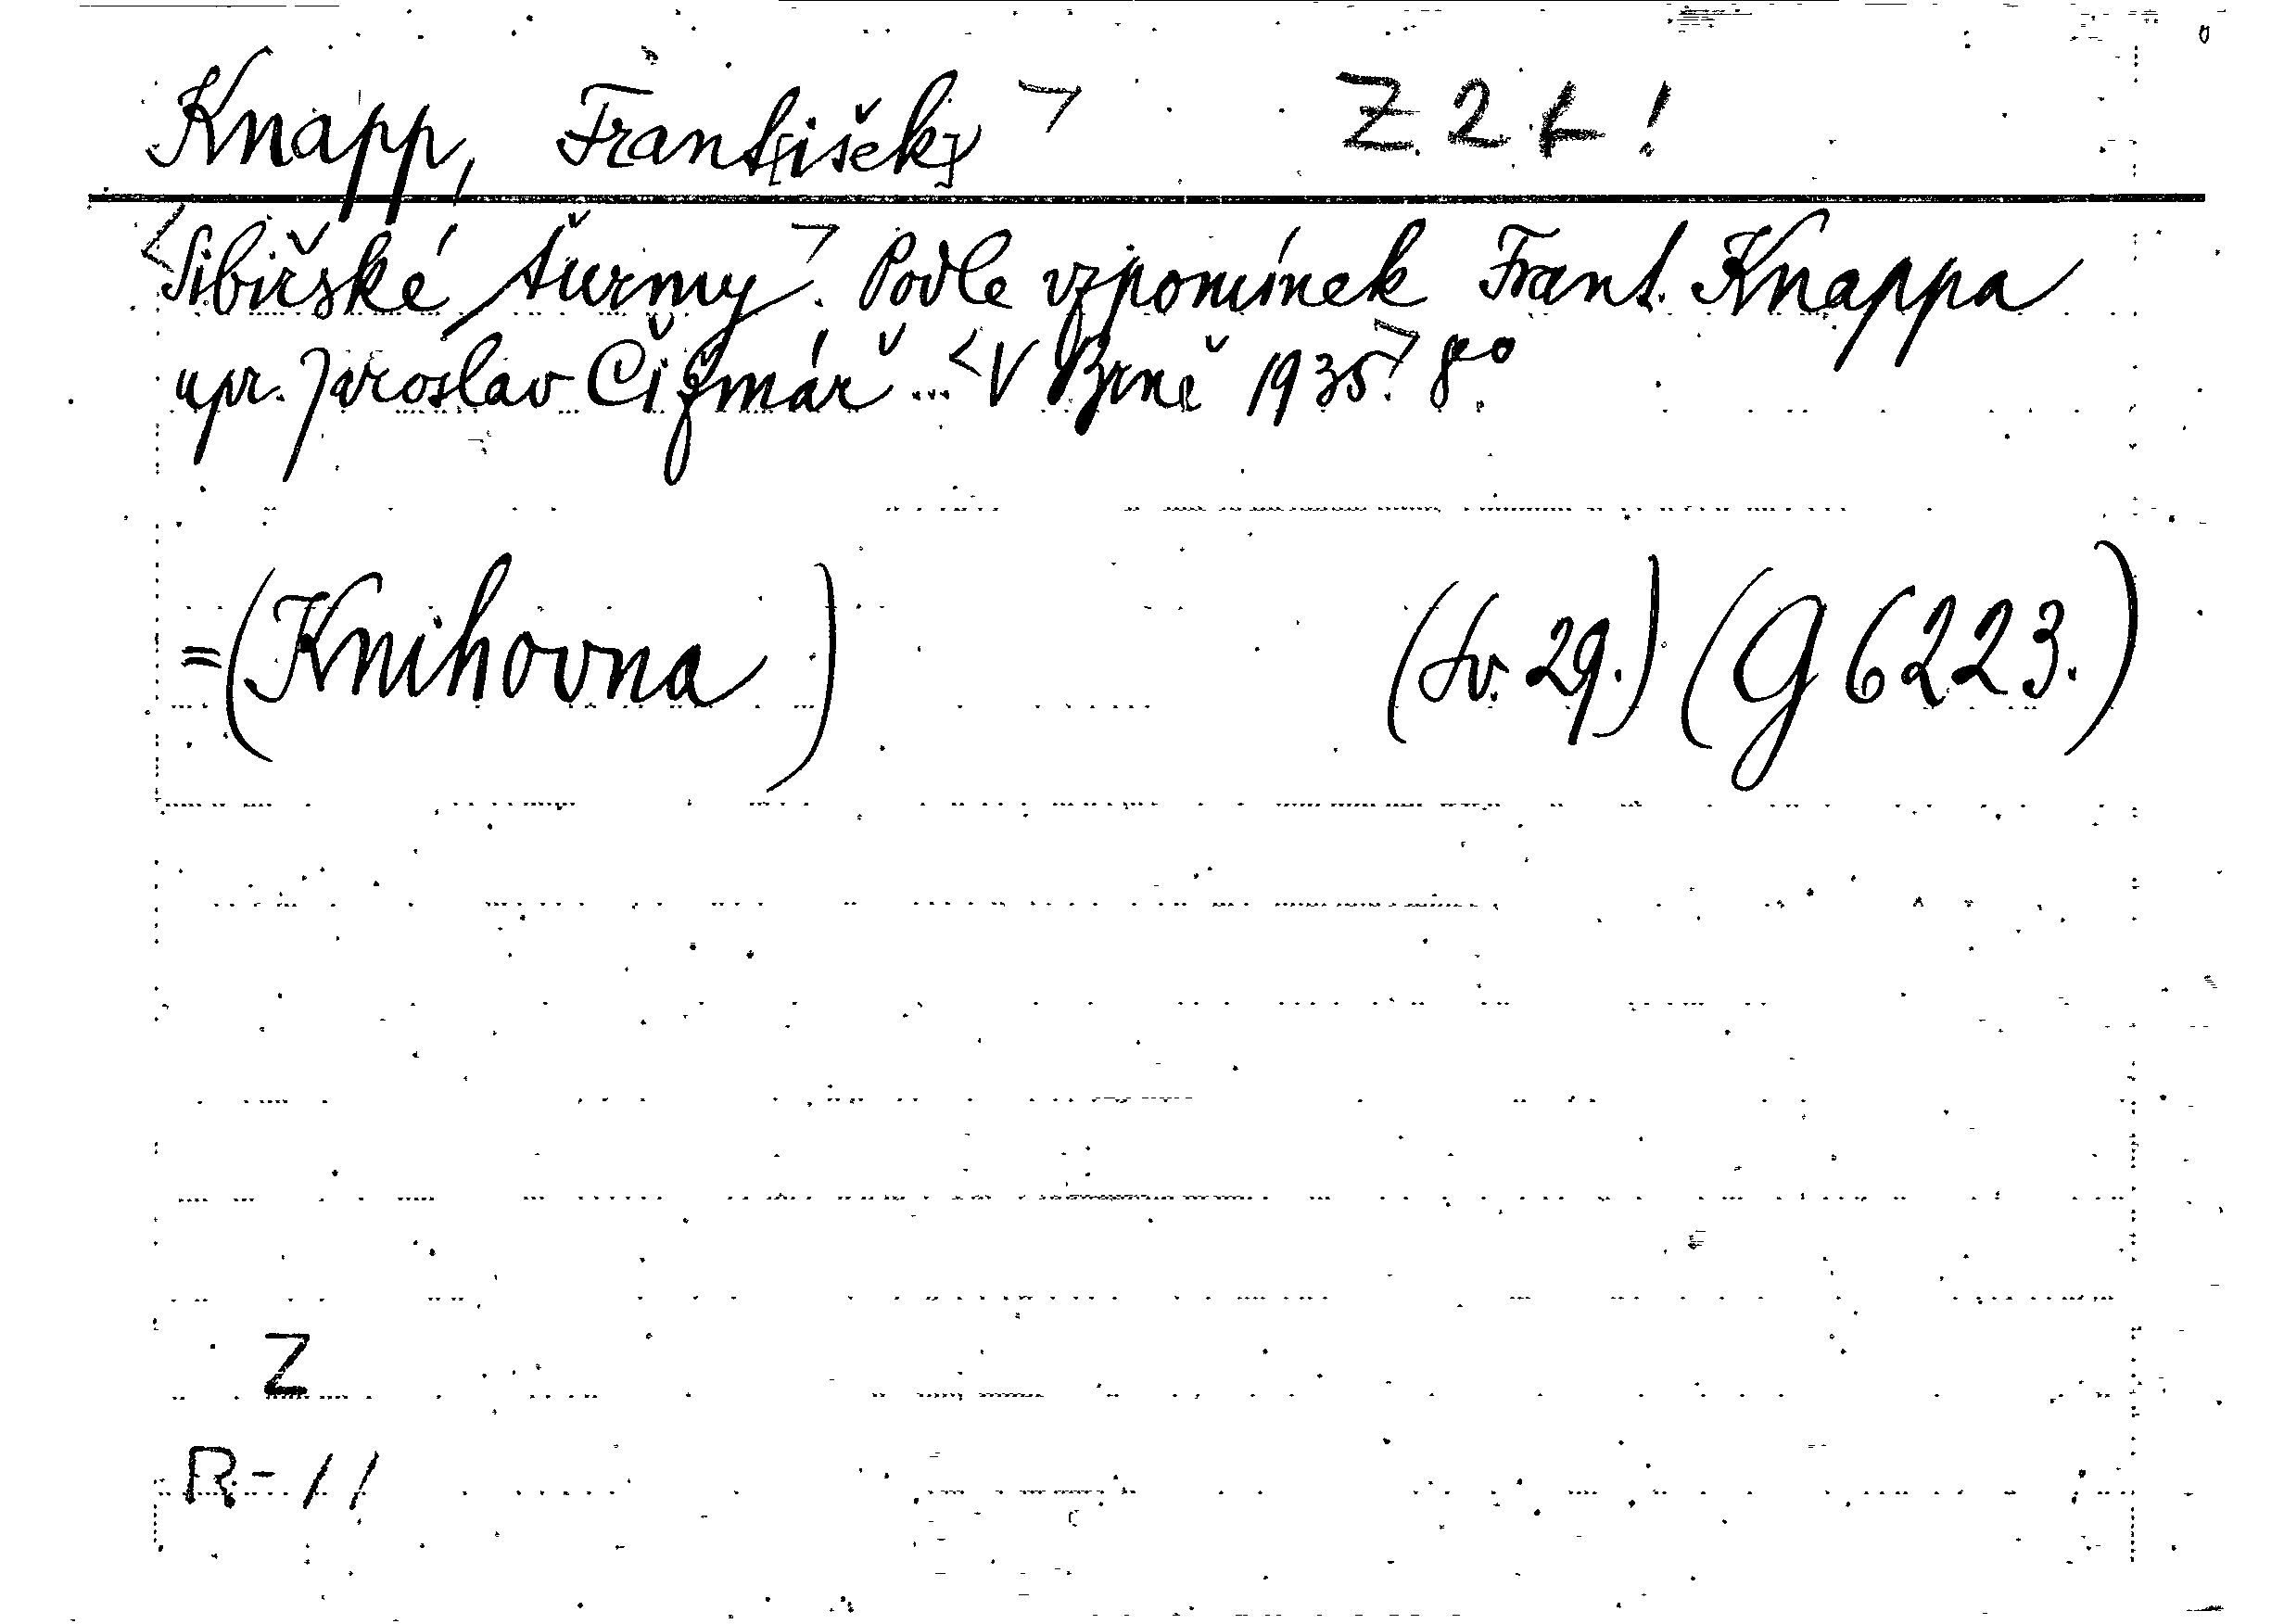 Knapp, Frant[išek] > Z 2 k !
<Sibiřské šurmy>. Podle vzpomínek Frant. Knappa
upr. Jaroslav Čižmář ... <V Brně 1935.> 8°.
=(Knihovna ) (sv. 29.) (G 6223.)
Z
R-11